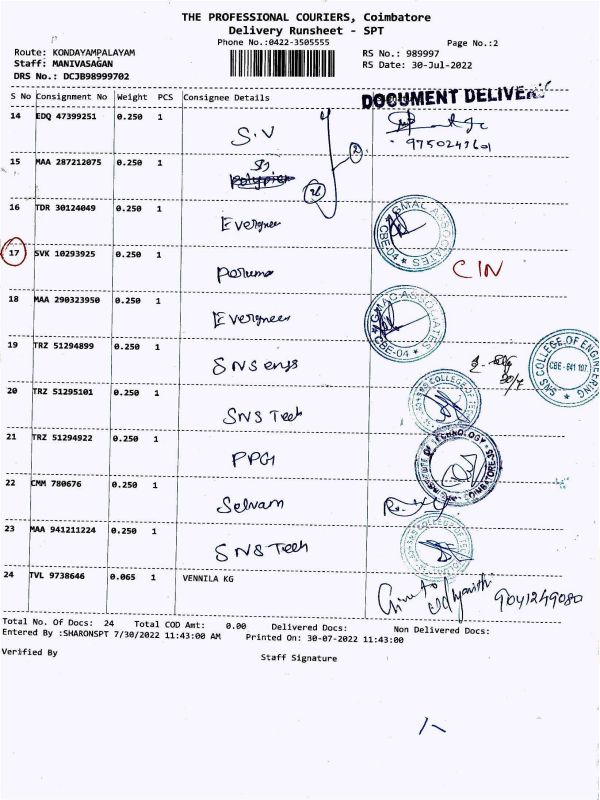 THE PROFESSIONAL COURIERS, Coimbatore
Delivery Runsheet - SPT
Phone No.:0422-3505555 Page No.:2
Route: KONDAYAMPALAYAM RS No.: 989997
Staff: MANIVASAGAN RS Date: 30-Jul-2022
DRS No.: DCJB98999702
S No Consignment No Weight PCS Consignee Details DOCUMENT DELIVER
14 EDQ 47399251 0.250 1 S.V
15 MAA 287212075 0.250 1
16 TDR 30124049 0.250 1 Evergreen GMAC ASSOCIATES CBE-04
17 SVK 10293925 0.250 1 CIN
18 MAA 290323950 0.250 1 Evergreen GMAC ASSOCIATES CBE-04
19 TRZ 51294899 0.250 1 SNS engg 30/7 SNS COLLEGE OF ENGINEERING CBE - 641 107.
20 TRZ 51295101 0.250 1 SNS Tech
21 TRZ 51294922 0.250 1 PPG
22 CMM 780676 0.250 1 Selvam
23 MAA 941211224 0.250 1 SNS Tech
24 TVL 9738646 0.065 1 VENNILA KG 9041249080
Total No. Of Docs: 24 Total COD Amt: 0.00 Delivered Docs: Non Delivered Docs:
Entered By :SHARONSPT 7/30/2022 11:43:00 AM Printed On: 30-07-2022 11:43:00
Verified By Staff Signature